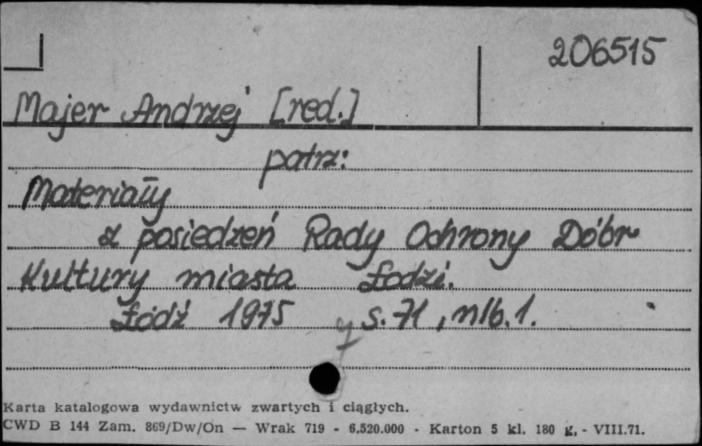 206515
Majer Andrzej [red.]
patrz:
Materiały
z posiedzeń Rady Ochrony Dóbr
Kultury miasta Łodzi.
Łódź 1975 s. 71, nlb. 1.
Karta katalogowa wydawnictw zwartych i ciągłych.
CWD B 144 Zam. 869/Dw/On — Wrak 719 - 6.520.000 - Karton 5 kl. 180 g, - VIII.71.